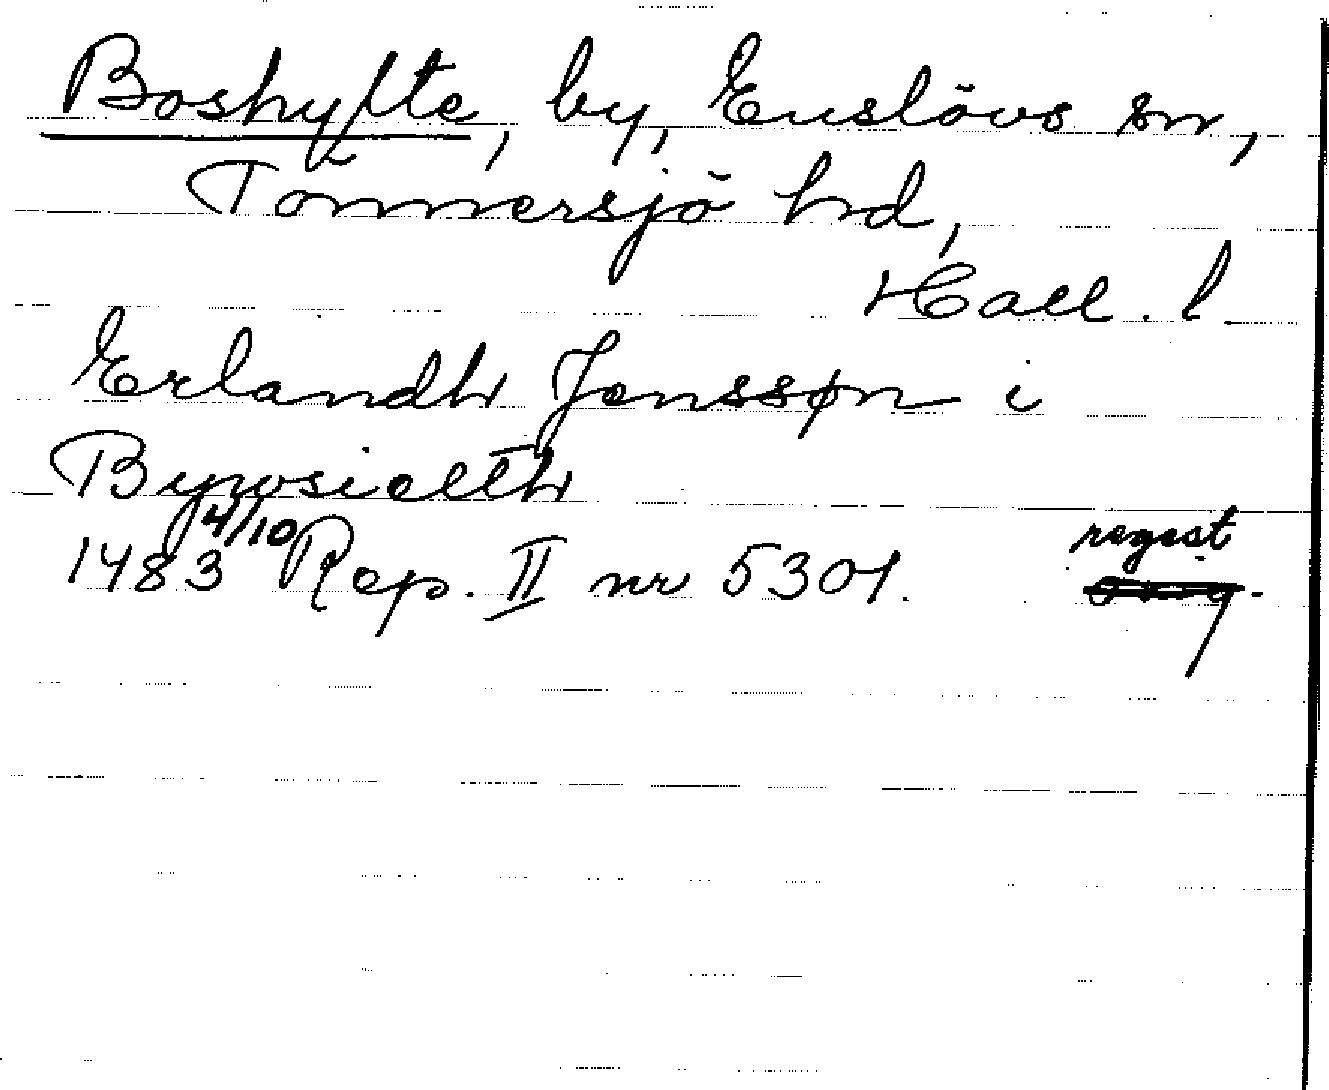 Boshylte, by, Enslövs sn,
Tönnersjö hd,
Hall. l
Erlandh Jenssøn i
Bywsicelth
1483 4/10 Rep. II nr 5301. regest